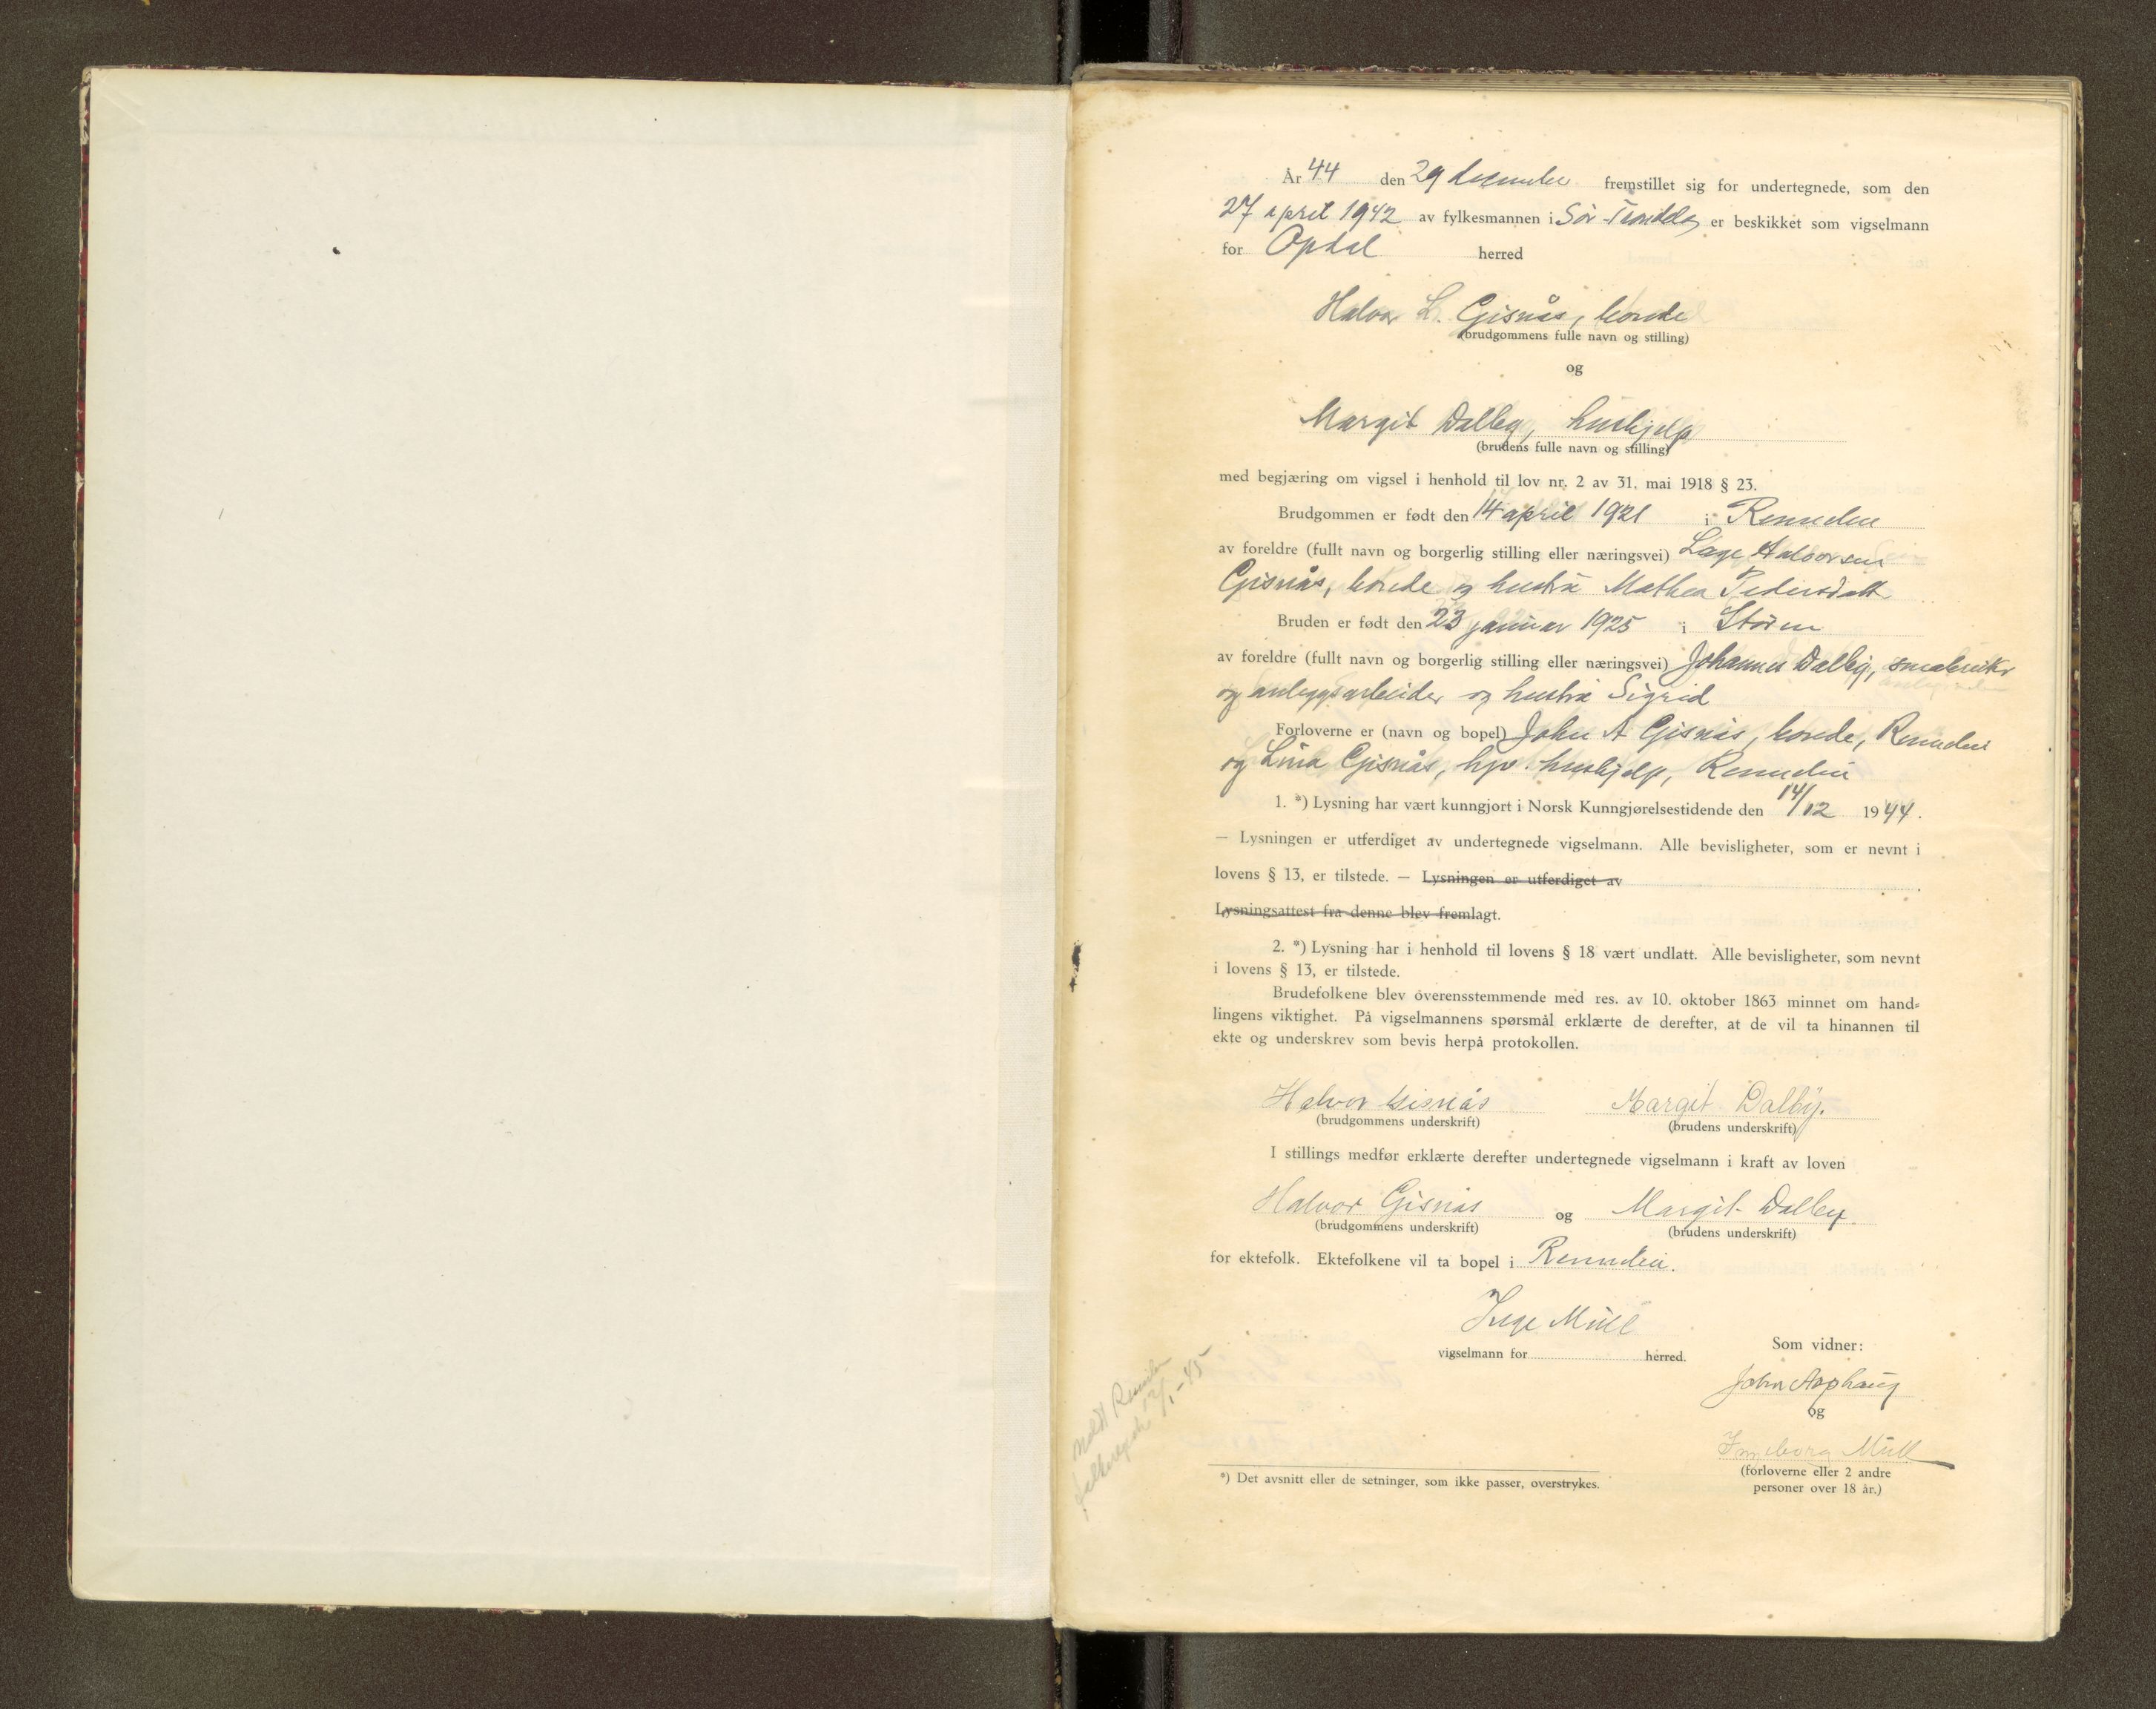 År 44 den 29 desember fremstillet sig for undertegnede, som den
27 april 1942 av fylkesmannen i Sør-Trøndelag er beskikket som vigselmann
for Opdal herred
Halvor L. Gisnås, bonde
(brudgommens fulle navn og stilling)
og
Margit Dalby, hushjelp
(brudens fulle navn og stilling)
med begjæring om vigsel i henhold til lov nr. 2 av 31. mai 1918 § 23.
Brudgommen er født den 14 april 1921 i Rennebu
av foreldre (fullt navn og borgerlig stilling eller næringsvei) Lage Halvorsen
Gisnås, bonde og hustru Mathea Pedersdatt
Bruden er født den 23 januar 1925 i Støren
av foreldre (fullt navn og borgerlig stilling eller næringsvei) Johannes Dalby, småbruker
og anleggsarbeider og hustru Sigrid
Forloverne er (navn og bopel) John A Gisnås, bonde, Rennebu
og Lina Gisnås, hjv. hushjelp, Rennebu
1. *) Lysning har vært kunngjort i Norsk Kunngjørelsestidende den 14/12 1944.
— Lysningen er utferdiget av undertegnede vigselmann. Alle bevisligheter, som er nevnt i
lovens § 13, er tilstede. — Lysningen er utferdiget av
Lysningsattest fra denne blev fremlagt.
2. *) Lysning har i henhold til lovens § 18 vært undlatt. Alle bevisligheter, som nevnt
i lovens § 13, er tilstede.
Brudefolkene blev overensstemmende med res. av 10. oktober 1863 minnet om hand-
lingens viktighet. På vigselmannens spørsmål erklærte de derefter, at de vil ta hinannen til
ekte og underskrev som bevis herpå protokollen.
Halvor Gisnås Margit Dalby.
(brudgommens underskrift) (brudens underskrift)
I stillings medfør erklærte derefter undertegnede vigselmann i kraft av loven
Halvor Gisnås og Margit Dalby
(brudgommens underskrift) (brudens underskrift)
for ektefolk. Ektefolkene vil ta bopel i Rennebu.
Inge Mull
vigselmann for herred.
Som vidner:
John Asphaug
og
Ingeborg Mull
(forloverne eller 2 andre
personer over 18 år.)
*) Det avsnitt eller de setninger, som ikke passer, overstrykes.
12/1-45